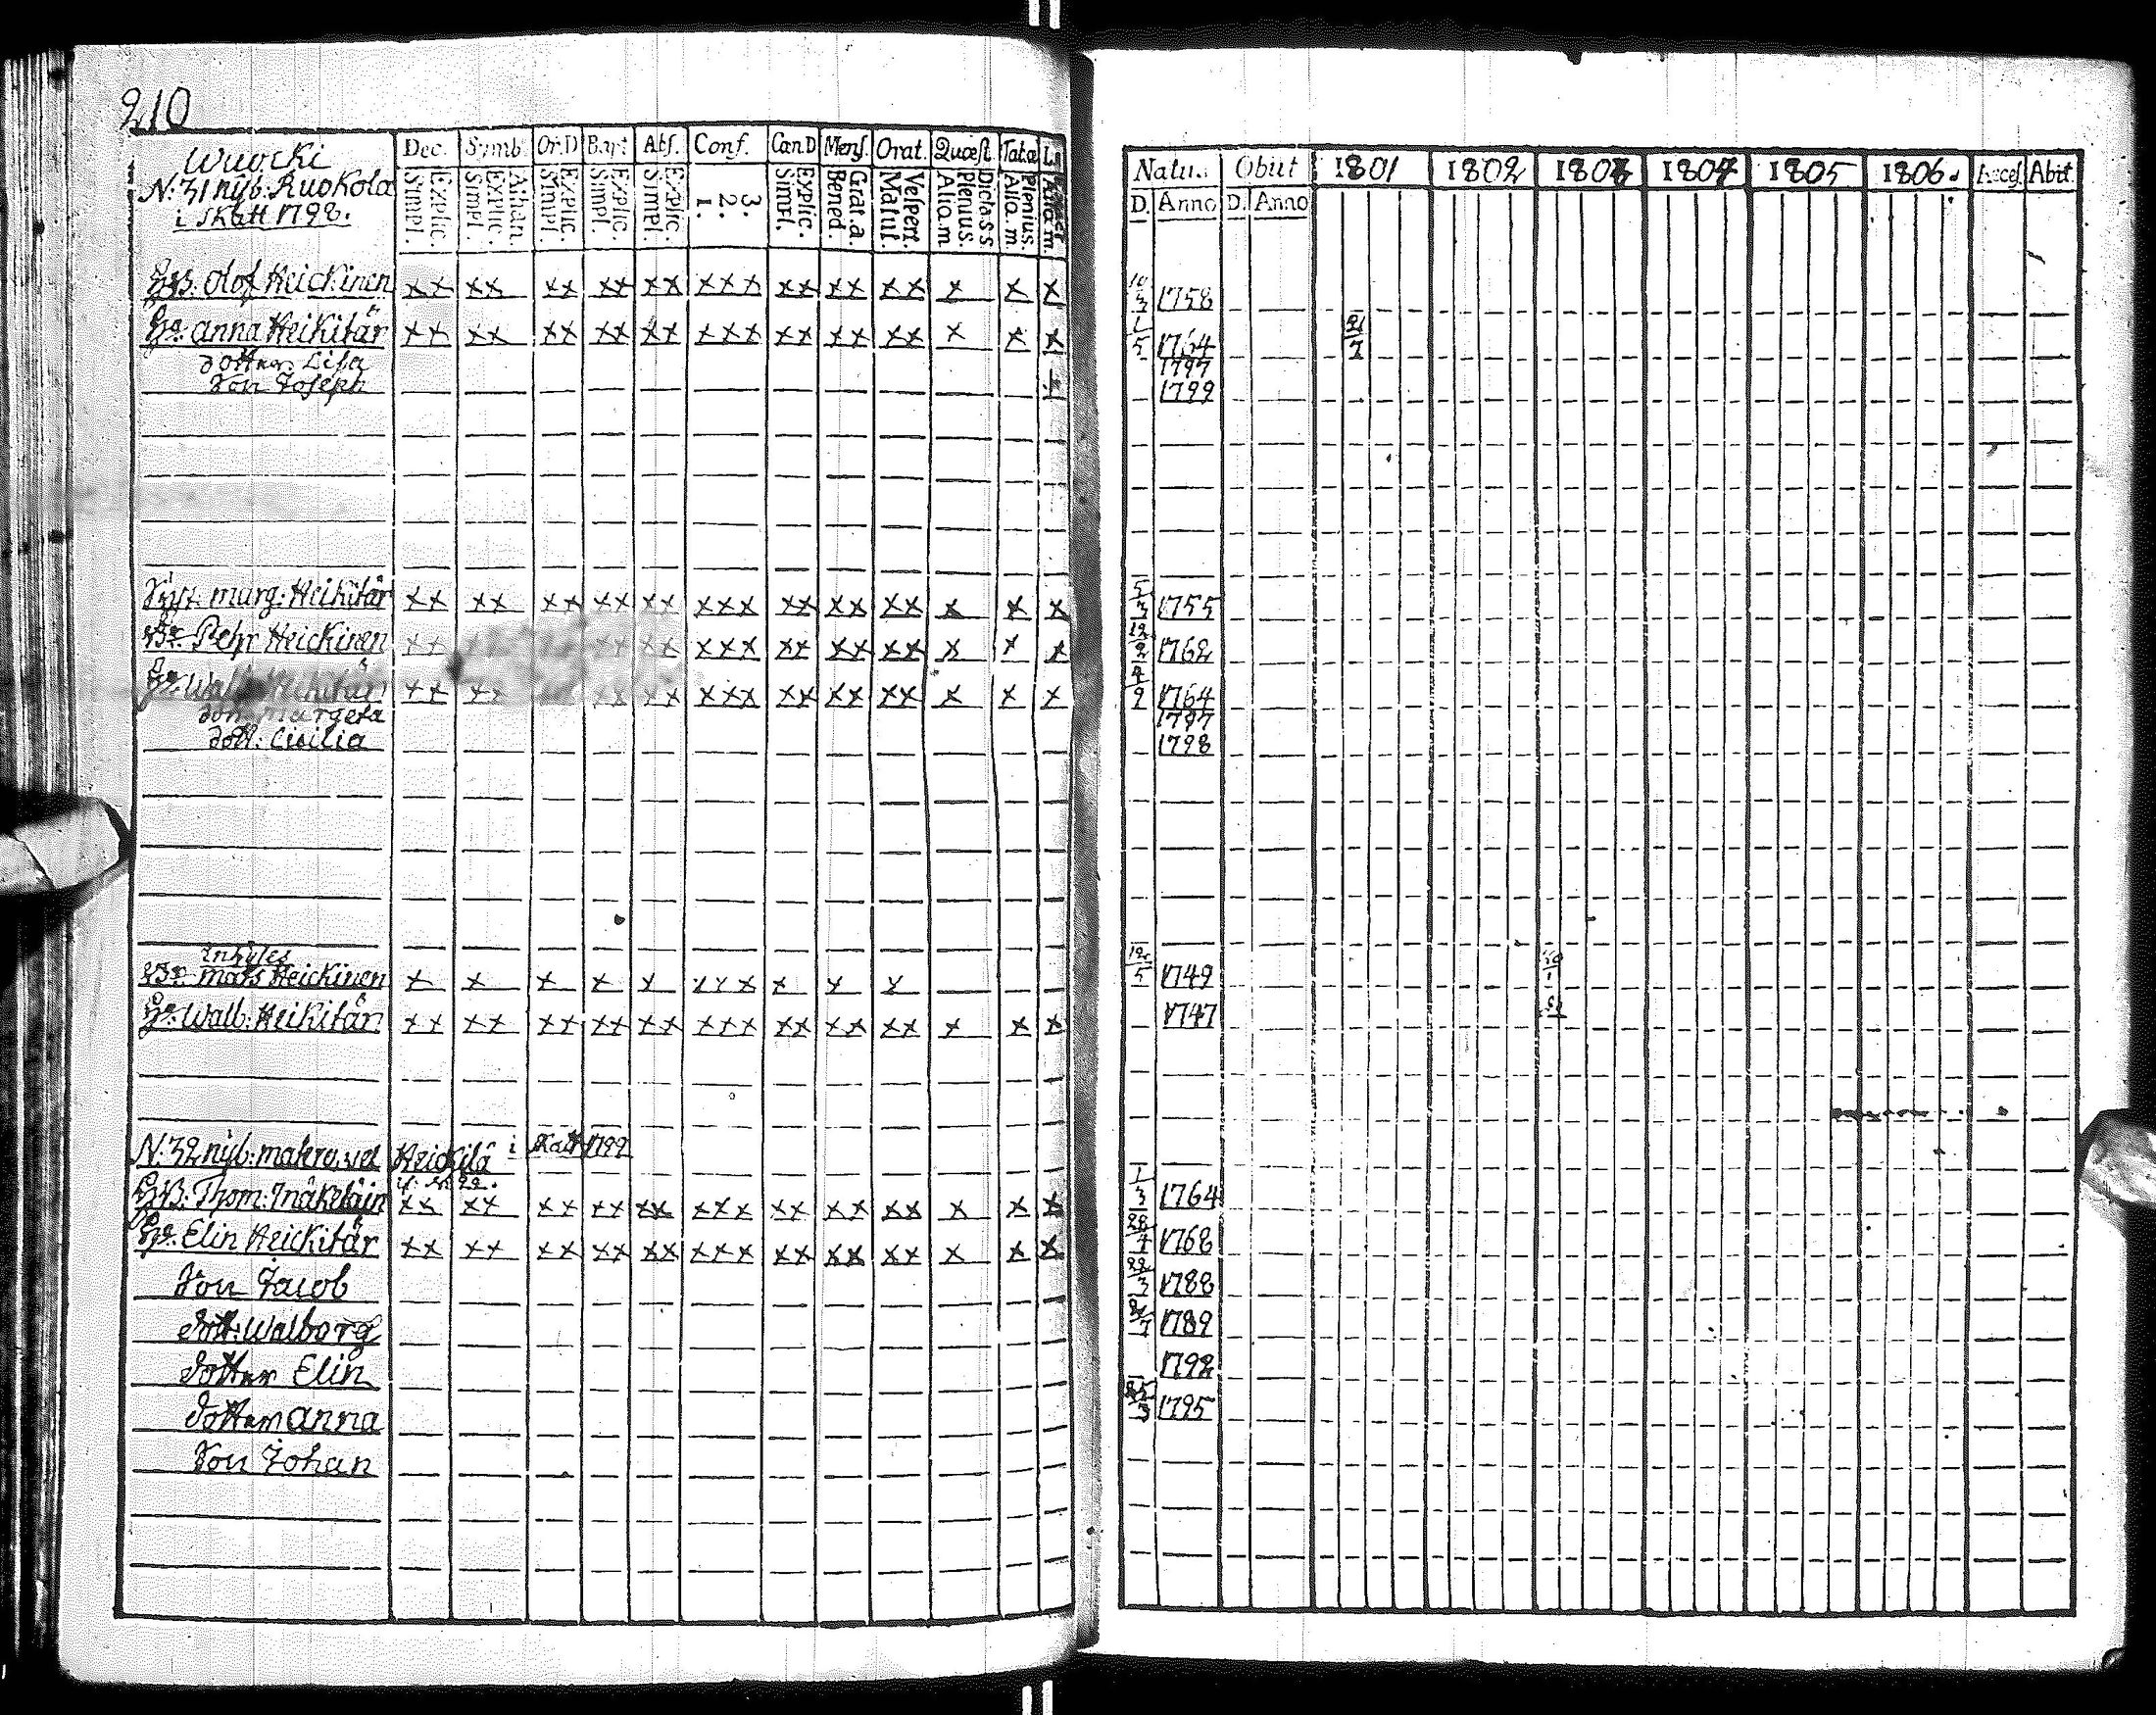 210
Wuocki
N:31 nyb. Ruokola
i Skatt 1798.
Dec. Symb. Or.D Bapt. Abs. Conf. Can.D Mens. Orat. Quæst. Tab.æ
Explic. Simpl. Athan. Explic. Simpl. Explic. Simpl. Explic. Simpl. Explic. Simpl. 3. 2. 1. Explic. Simpl. Grat.a. Bened. Vespert. Matut. Dicta.s.s Plenius. Aliq.m Plenius. Aliq.m Aliq.m.
Natus Obiit 1801 1802 1803 1804 1805 1806. Acces. Abit.
D. Anno D. Anno
HB. Olof Heickinen xx xx xx xx xx xxx xx xx xx x x x 10/3 1758
Hu. Anna Heikitär xx xx xx xx xx xxx xx xx xx x x x 1/5 1764
dotter Lisa 1797
Son Joseph 1799
Syst. marg: Heikitär xx xx xx xx xx xxx xx xx xx x x x 5/3 1755
Br. Pehr Heickinen xx xx xx xx xx xxx xx xx xx x x x 12/2 1762
Hu. Walb. Heikitär xx xx xx xx xx xxx xx xx xx x x x 4/2 1764
dott. Margeta 1797
dott: Cicilia 1798
Inhyses
Br. mats Heickinen x x x x x xxx x x x 12/5 1749
Hu. Walb: Heikitär xx xx xx xx xx xxx xx xx xx x x x 1747
N:32 nyb: Heickilä i Skatt 1799
HB. Thom: xx xx xx xx xx xxx xx xx xx x x x 1/3 1764
Hu. Elin Heickitär xx xx xx xx xx xxx xx xx xx x x x 28/4 1768
Son Jacob 22/3 1788
dott: Walborg 1789
dotter Elin 1792
dotter Anna 25/3 1795
Son Johan